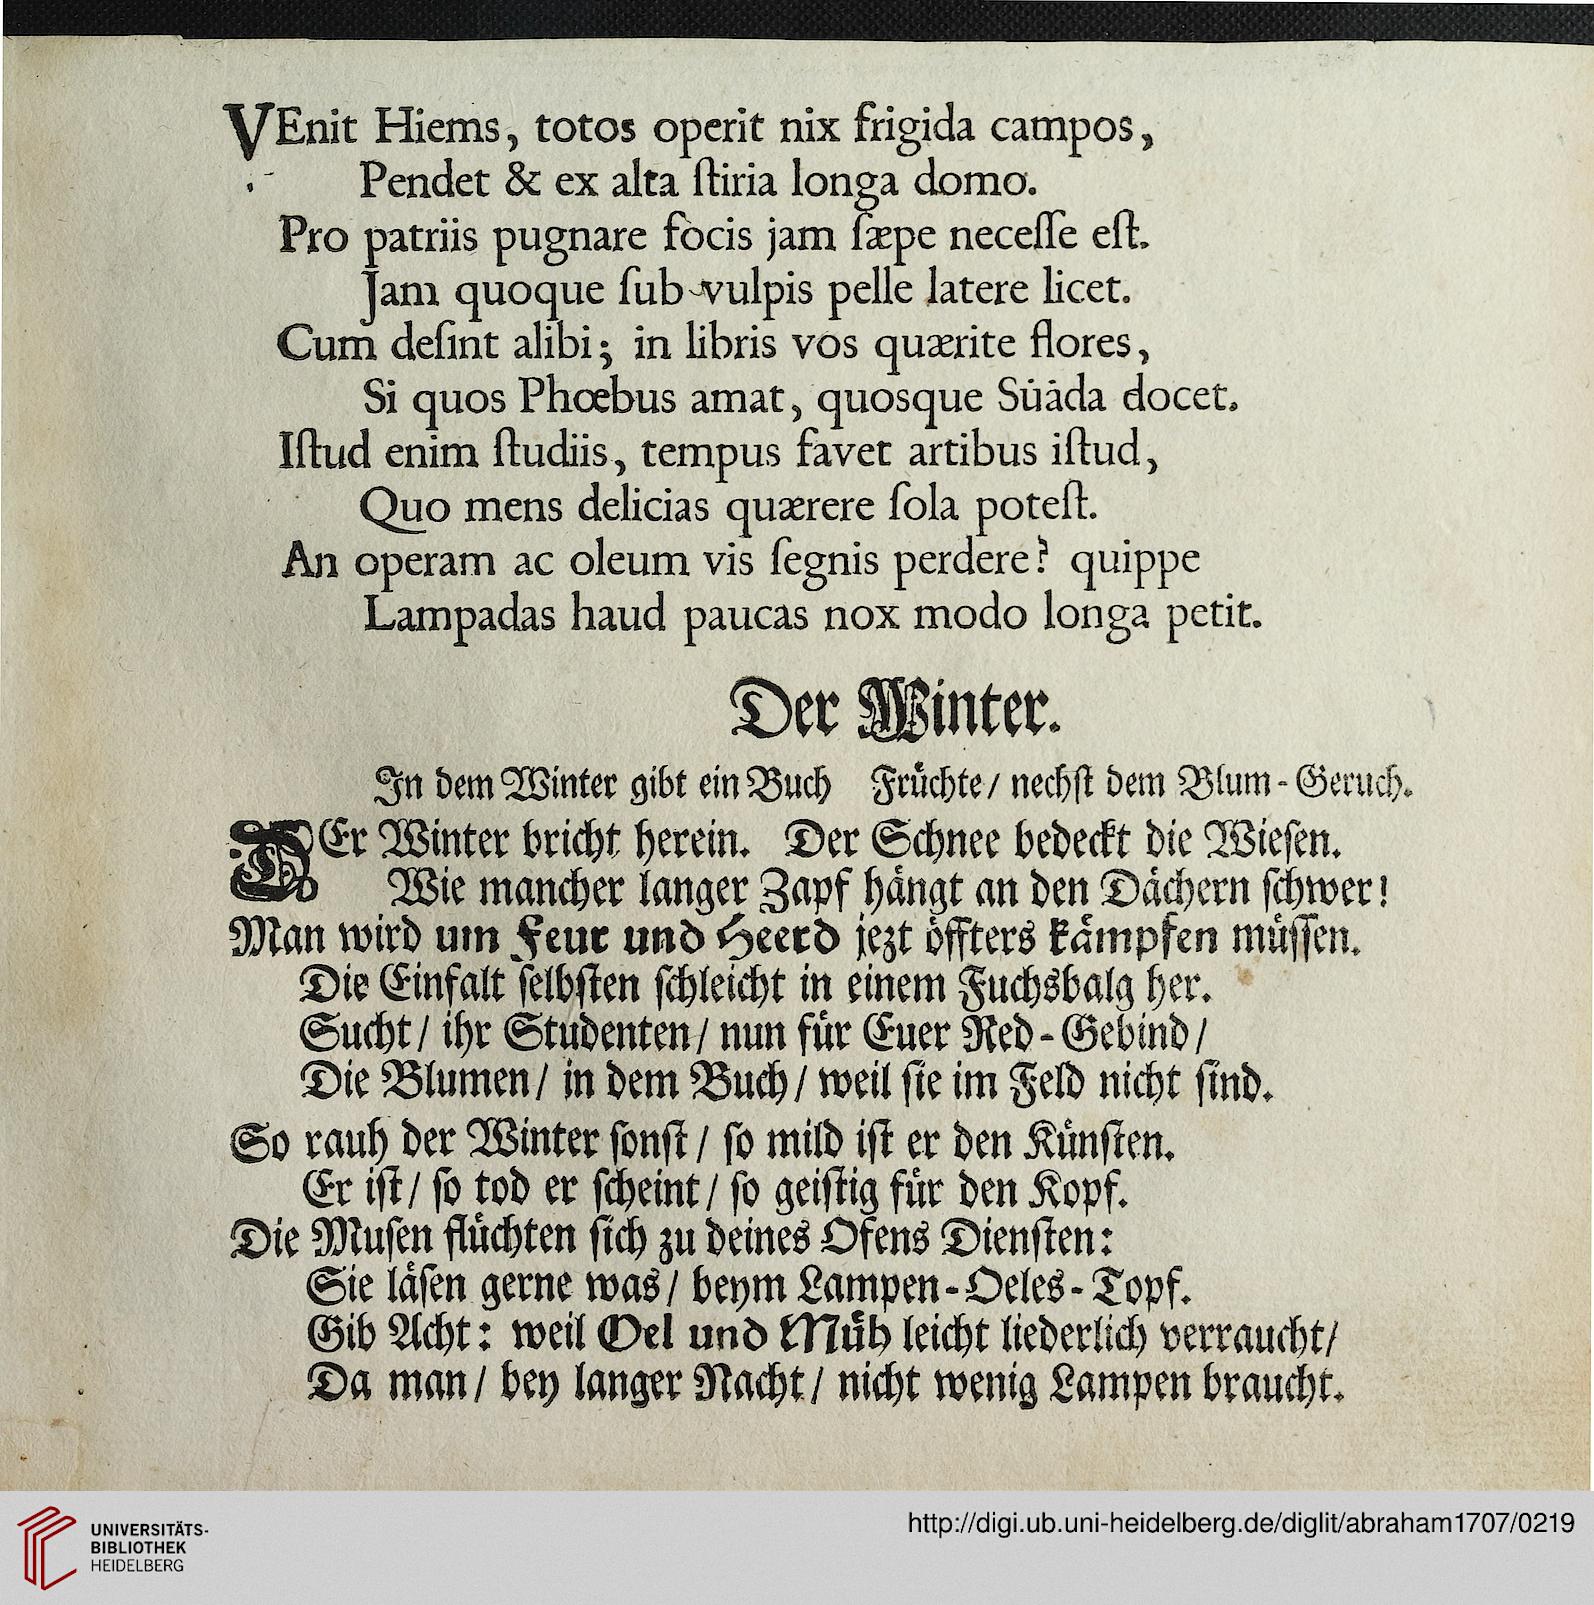 VEnit Hiems, totos operit nix frigida campos,
Pendet & ex alta ſtiria longa domo.
Pro patriis pugnare focis jam ſæpe neceſſe eſt.
Jam quoque ſub vulpis pelle latere licet.
Cum deſint alibi; in libris vos quærite flores,
Si quos Phœbus amat, quosque Süäda docet.
Iſtud enim ſtudiis, tempus favet artibus iſtud,
Quo mens delicias quærere ſola poteſt.
An operam ac oleum vis ſegnis perdere? quippe
Lampadas haud paucas nox modo longa petit.
Der Winter.
In dem Winter gibt ein Buch Früchte/ nechſt dem Blum-Geruch.
DEr Winter bricht herein. Der Schnee bedeckt die Wieſen.
Wie mancher langer Zapf hängt an den Dächern ſchwer!
Man wird um Feur und Heerd jezt öffters kämpfen müſſen.
Die Einfalt ſelbſten ſchleicht in einem Fuchsbalg her.
Sucht/ ihr Studenten/ nun für Euer Red-Gebind/
Die Blumen/ in dem Buch/ weil ſie im Feld nicht ſind.
So rauh der Winter ſonſt/ ſo mild iſt er den Künſten.
Er iſt/ ſo tod er ſcheint/ ſo geiſtig für den Kopf.
Die Muſen flüchten ſich zu deines Ofens Dienſten:
Sie läſen gerne was/ beym Lampen-Oeles-Topf.
Gib Acht: weil Oel und Müh leicht liederlich verraucht/
Da man/ bey langer Nacht/ nicht wenig Lampen braucht.
UNIVERSITÄTS-
BIBLIOTHEK
HEIDELBERG
http://digi.ub.uni-heidelberg.de/diglit/abraham1707/0219